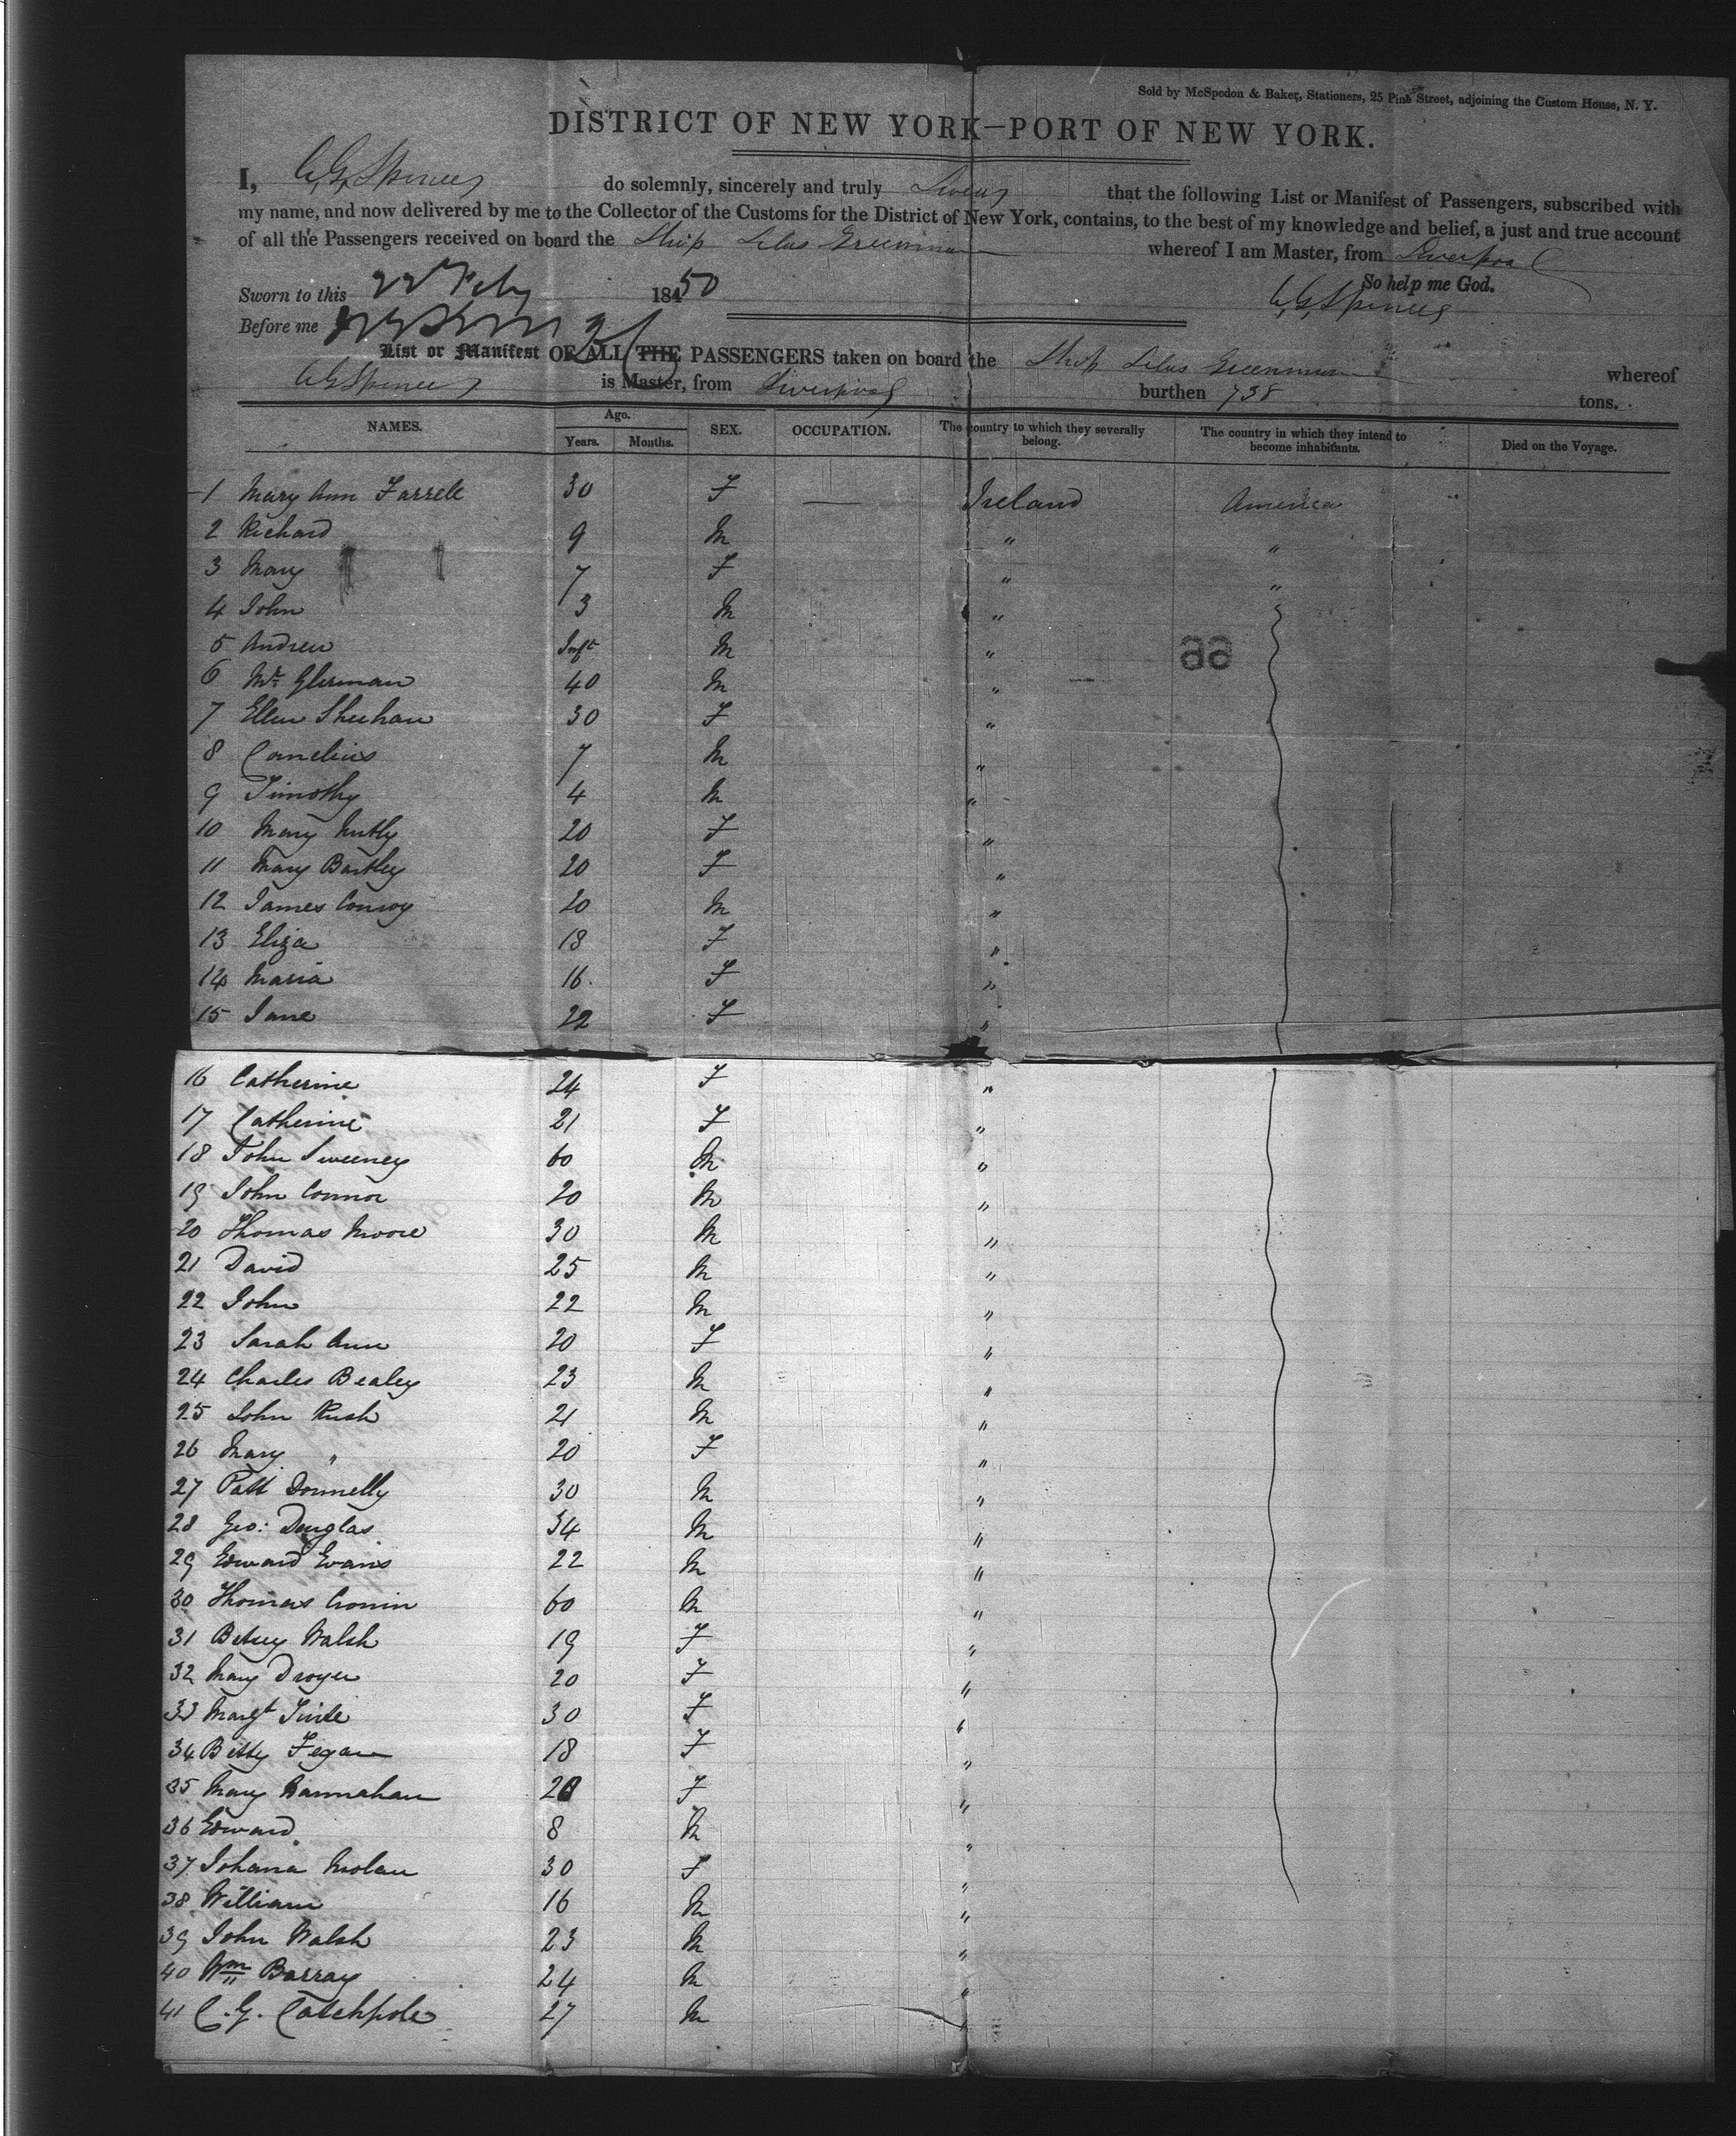 Sold by McSpedon & Baker, Stationers, 25 Pine Street, adjoining the Custom House, N. Y.
DISTRICT OF NEW YORK—PORT OF NEW YORK.
I, do solemnly, sincerely and truly Swear that the following List or Manifest of Passengers, subscribed with
my name, and now delivered by me to the Collector of the Customs for the District of New York, contains, to the best of my knowledge and belief, a just and true account
of all the Passengers received on board the Ship Silas Greenman whereof I am Master, from Liverpool
So help me God.
Sworn to this 22 Feby 1850
Before me
List or Manifest OF ALL THE PASSENGERS taken on board the Ship Silas Greenman whereof
is Master, from Liverpool burthen 738 tons.
NAMES. Age. Years. Months. SEX. OCCUPATION. The country to which they severally belong. The country in which they intend to become inhabitants. Died on the Voyage.
1 Mary Ann Farrell 30 F — Ireland America
2 Richard 9 M " "
3 Mary 7 F " "
4 John 3 M "
5 Andrew Inft M "
66
6 Mr 40 M "
7 Ellen Sheehan 30 F "
8 Cornelius 7 M "
9 Timothy 4 M "
10 Mary 20 F "
11 Mary Bartley 20 F "
12 James Conroy 20 M "
13 Eliza 18 F "
14 Maria 16 F "
15 Jane 22 F "
16 Catherine 24 F "
17 Catherine 21 F "
18 John Sweeney 60 M "
19 John Connor 20 M "
20 Thomas Moore 30 M "
21 David 25 M "
22 John 22 M "
23 Sarah Ann 20 F "
24 Charles Bealey 23 M "
25 John Rush 21 M "
26 Mary " 20 F "
27 Patt Donnelly 30 M "
28 Geo: Douglas 34 M "
29 Edward Evans 22 M "
30 Thomas Cronin 60 M "
31 Betsey Walsh 19 F "
32 Mary 20 F "
33 Margt 30 F "
34 Betty Fegan 18 F "
35 Mary Bannahan F "
36 Edward 8 M "
37 Johana Nolan 30 F "
38 William 16 M "
39 John Walsh 23 M "
40 Wm Barray 24 M "
41 C. G. Catchpole 27 M "